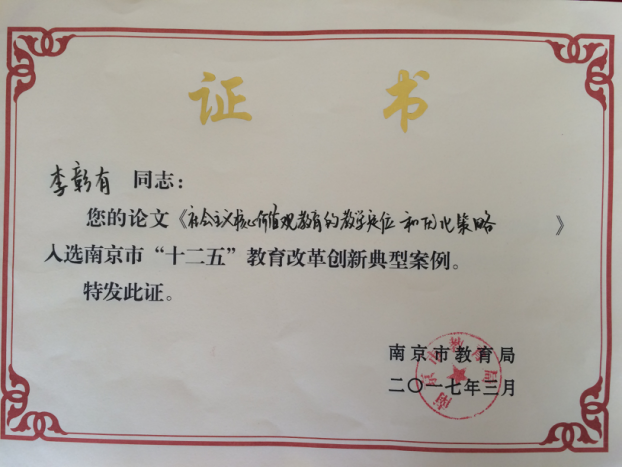 证 书
李彰有 同志：
您的论文《社会主义核心价值观教育的教学定位和内化策略》
入选南京市“十二五”教育改革创新典型案例。
特发此证。
南京市教育局
二〇一七年三月
南京市教育局